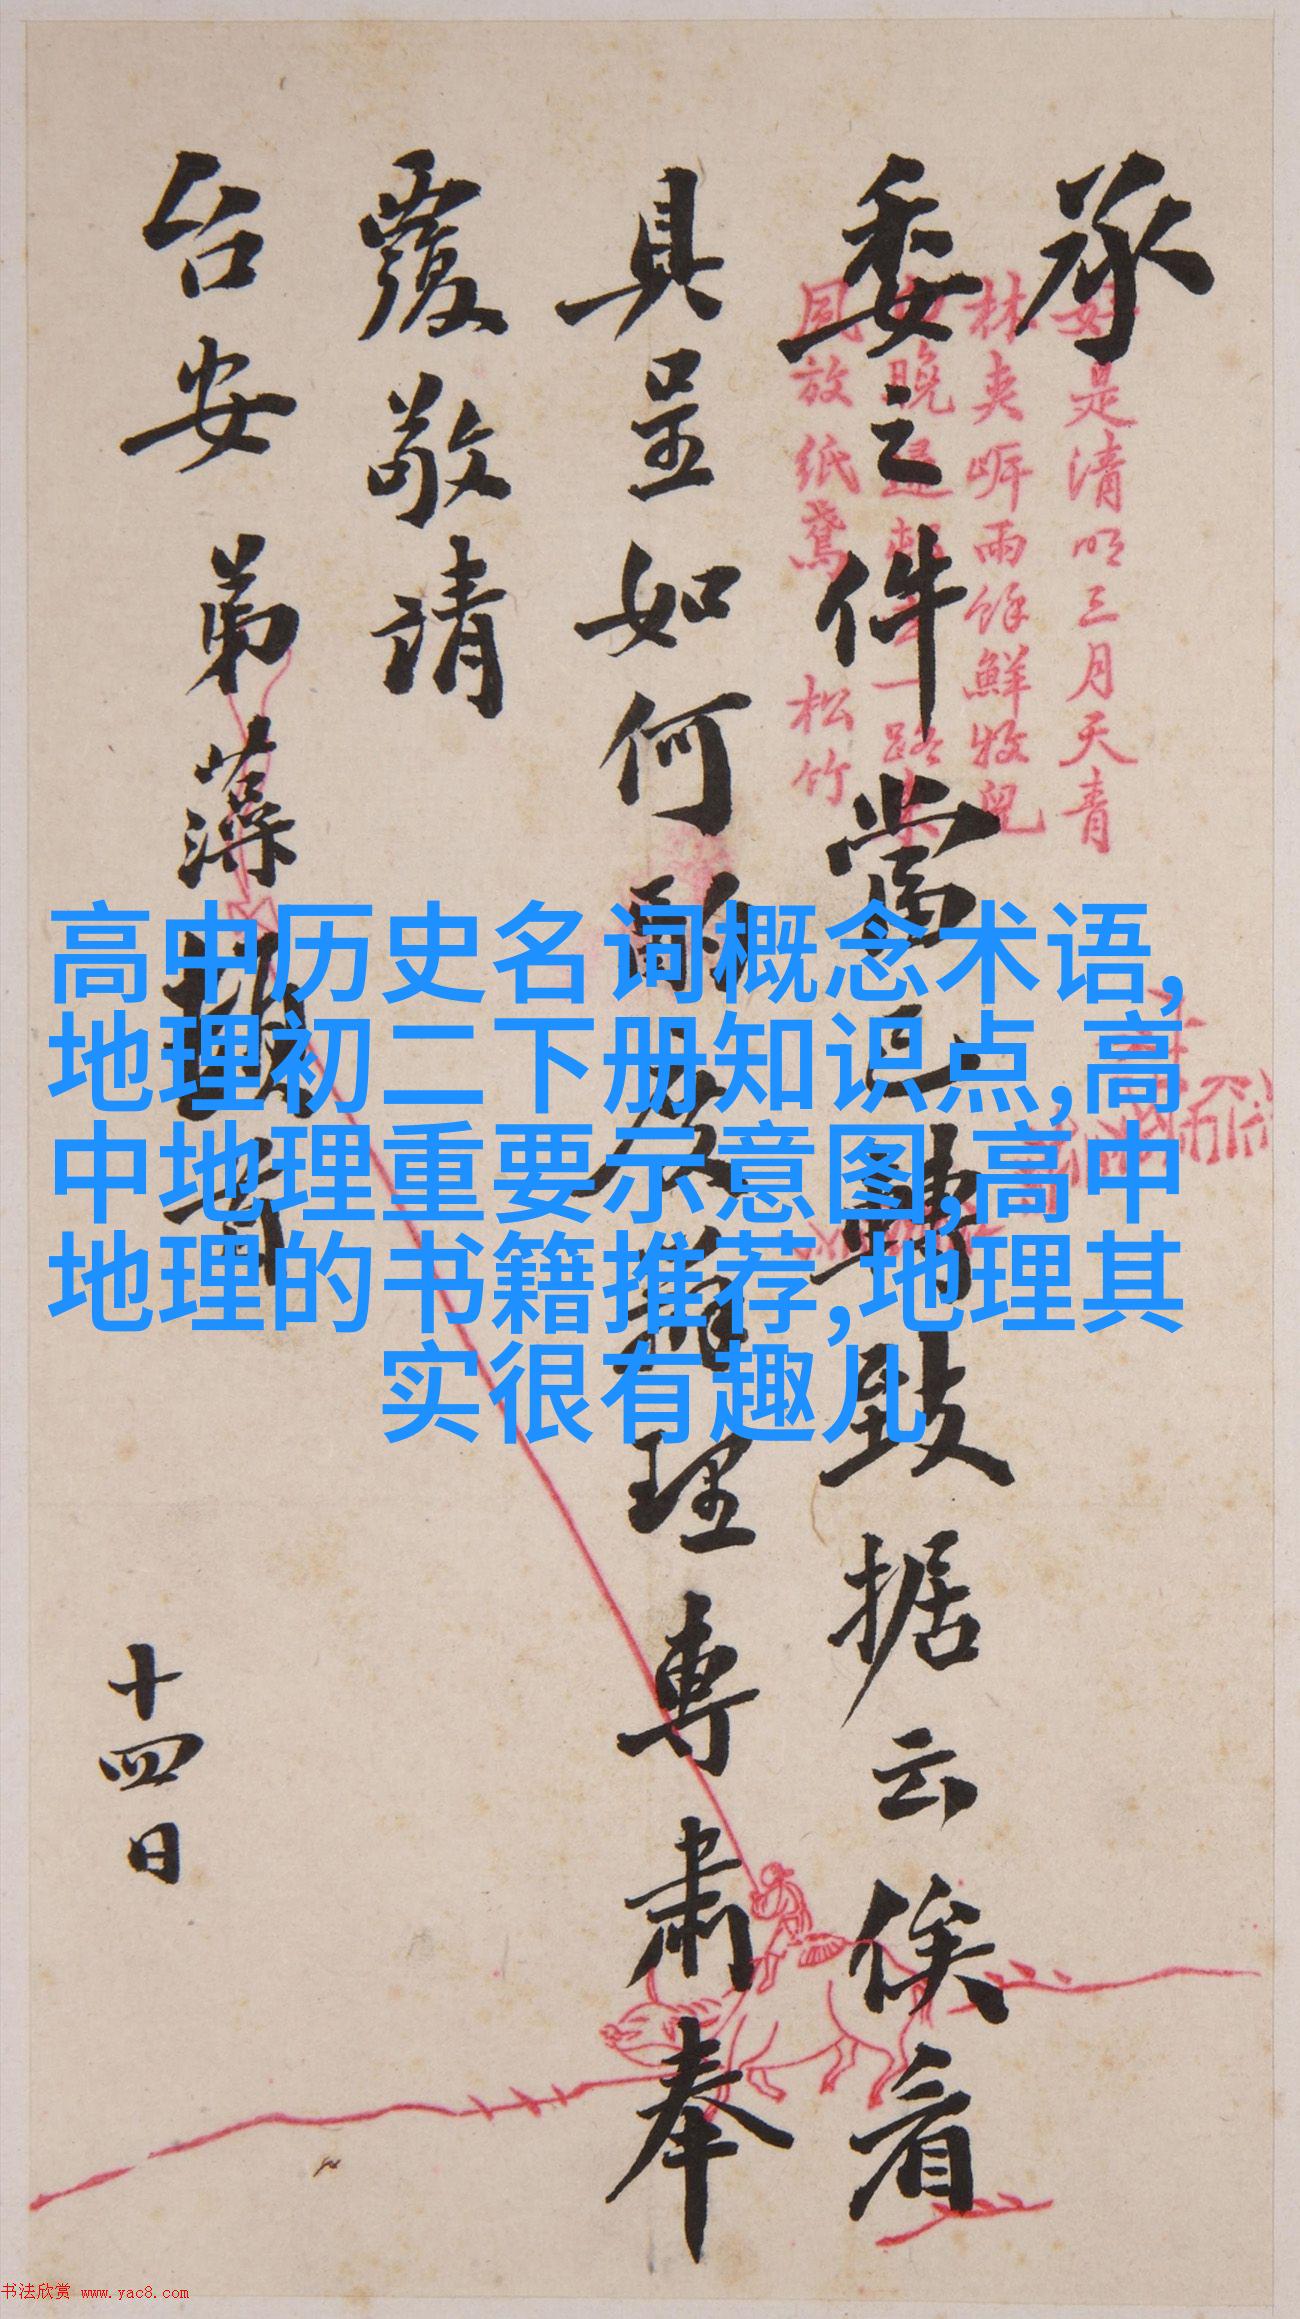 承
委之件當正轉致据云俟看
具呈如何 理專肅奉
覆敬請
台安 弟藻
十四日
是清明三月天青
林夹 雨餘鮮牧兒
晚 一路
放紙鳶 松竹
高中历史名词概念术语,
地理初二下册知识点,高
中地理重要示意图,高中
地理的书籍推荐,地理其
实很有趣儿
书法欣赏 www.yac8.com